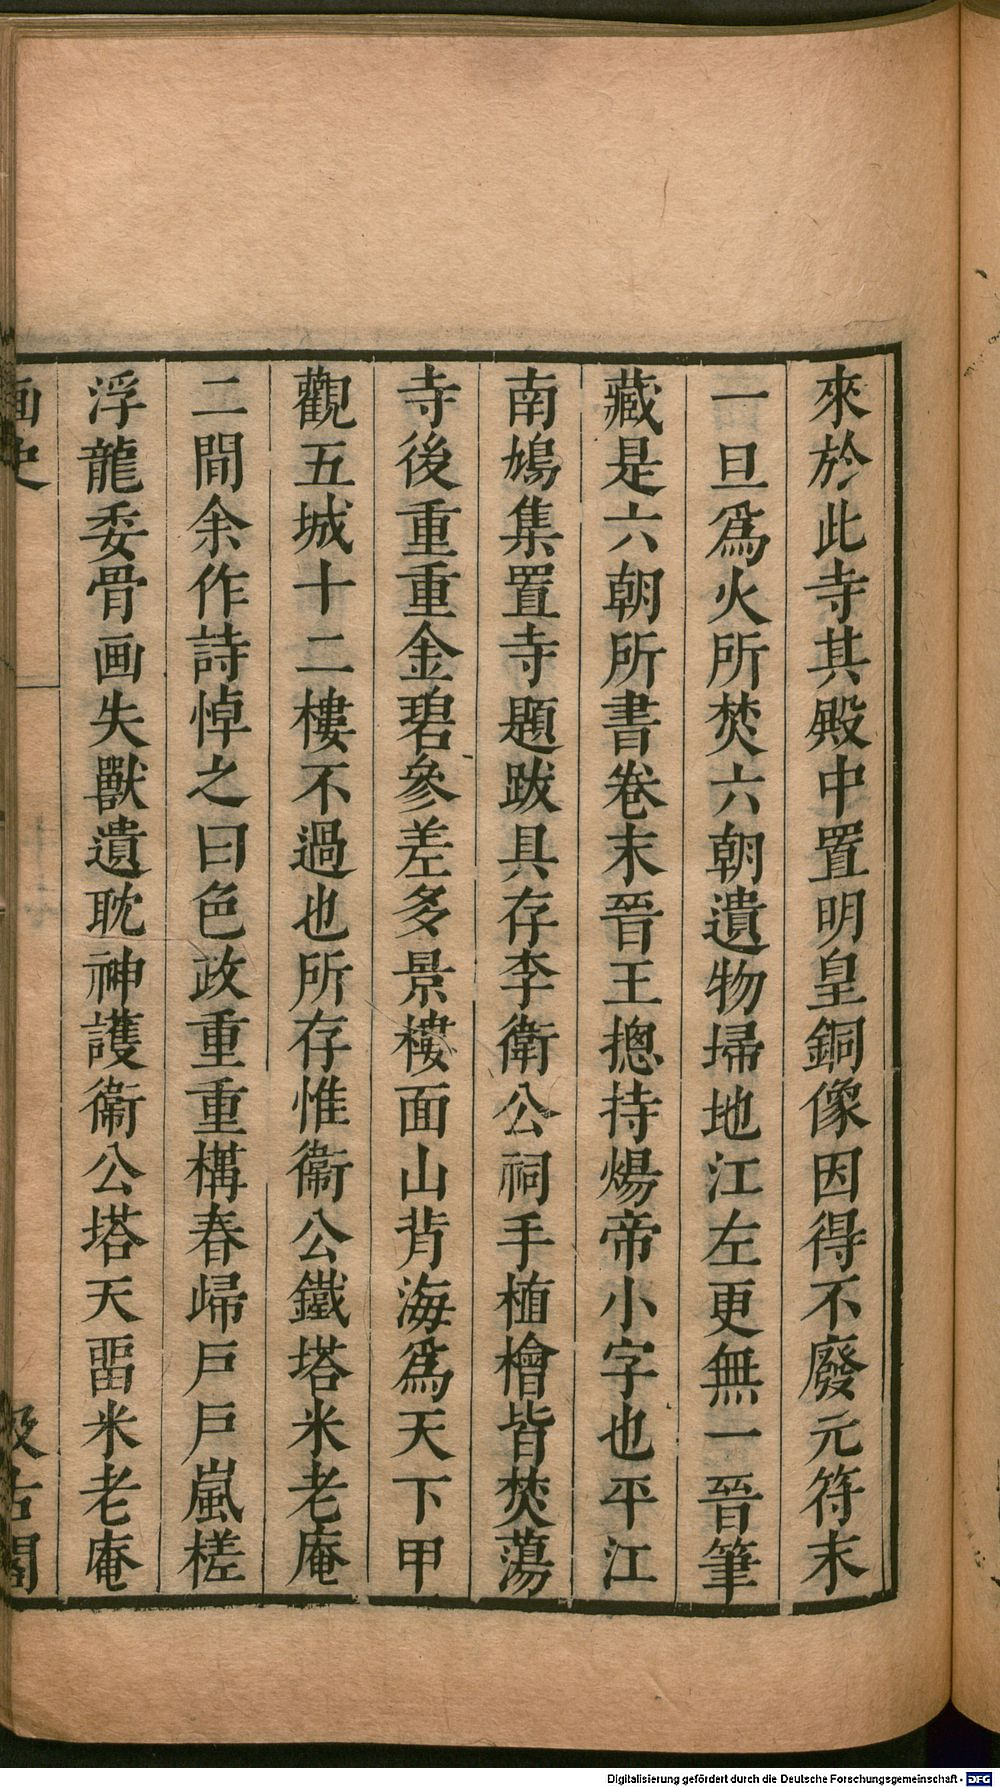 來於此寺其殿中置明皇銅像因得不廢元符末
一旦爲火所焚六朝遺物掃地江左更無一晉筆
藏是六朝所書卷末晉王摠持煬帝小字也平江
南鳩集置寺題跋具存李衛公祠手植檜皆焚蕩
寺後重重金碧參差多景樓面山背海爲天下甲
觀五城十二樓不過也所存惟衞公鐵塔米老庵
二間余作詩悼之曰色政重重構春歸戶戶嵐槎
浮龍委骨画失獸遺耽神護衞公塔天畱米老庵
画史
汲古閣
Digitalisierung gefördert durch die Deutsche Forschungsgemeinschaft - DFG